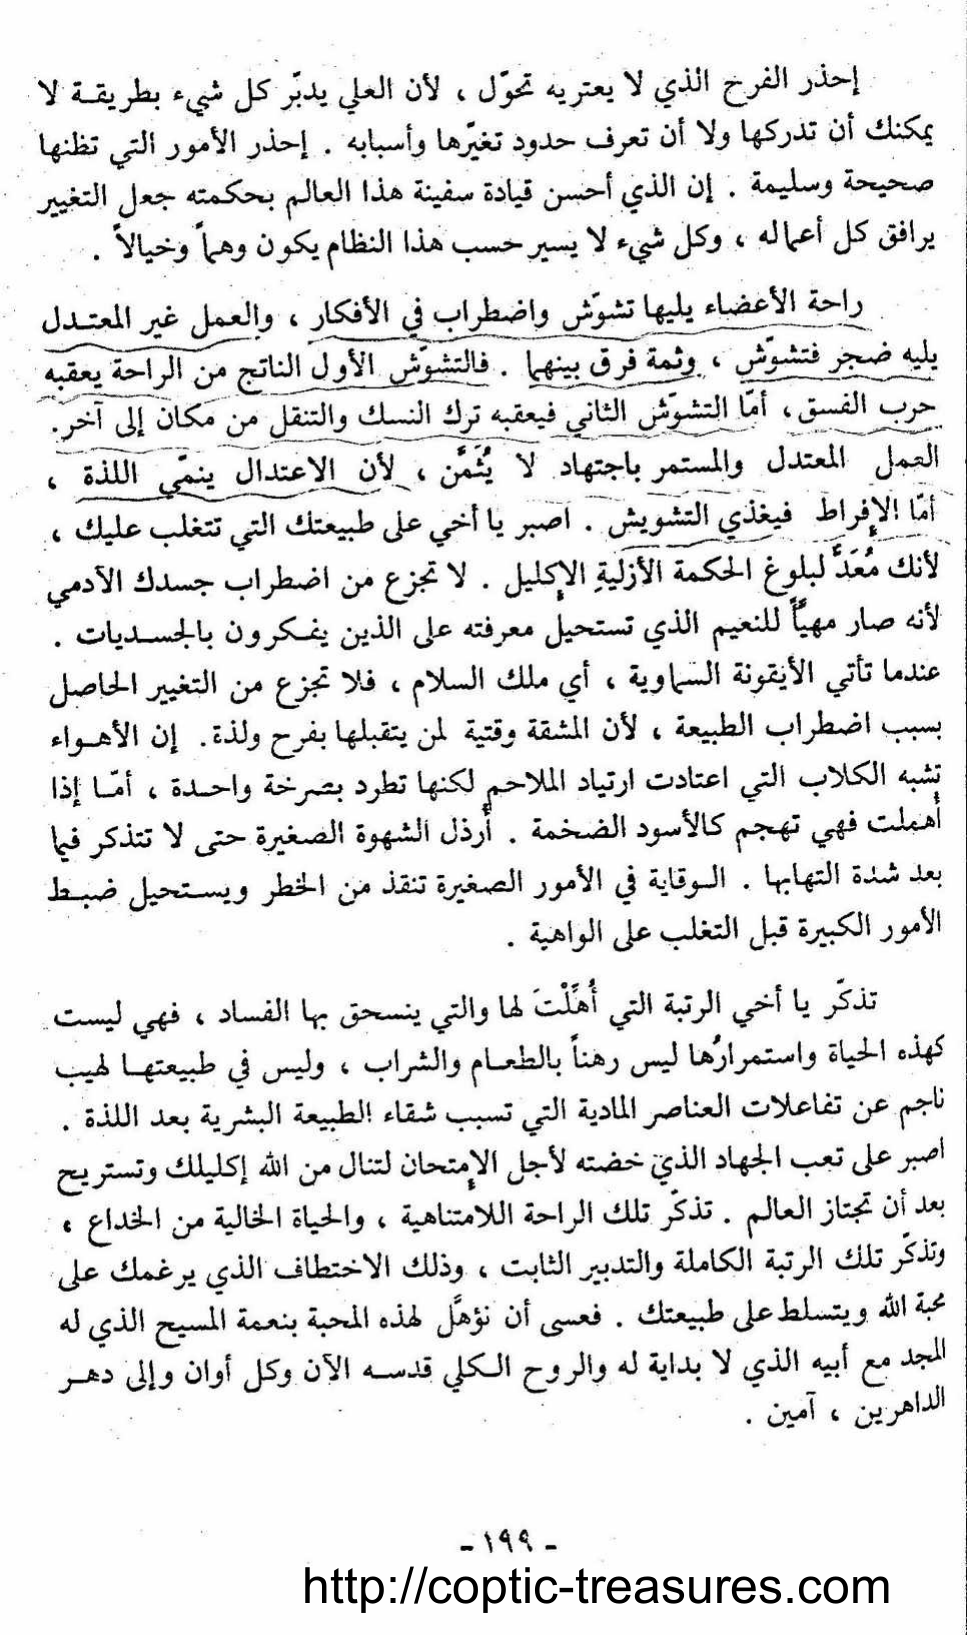 إحذر الفرح الذي لا يعتريه تحوّل ، لأن العلي يدبّر كل شيء بطريقة لا
يمكنك أن تدركها ولا أن تعرف حدود تغيّرها وأسبابه . إحذر الأمور التي تظنها
صحيحة وسليمة . إن الذي أحسن قيادة سفينة هذا العالم بحكمته جعل التغيير
يرافق كل أعماله ، وكل شيء لا يسير حسب هذا النظام يكون وهماً وخيالاً .
راحة الأعضاء يليها تشوّش واضطراب في الأفكار ، والعمل غير المعتدل
يليه ضجر فتشوّش ، وثمة فرق بينهما . فالتشوّش الأول الناتج من الراحة يعقبه
حرب الفسق ، أمّا التشوّش الثاني فيعقبه ترك النسك والتنقل من مكان إلى آخر.
العمل المعتدل والمستمر باجتهاد لا يُثَمَّن ، لأن الاعتدال ينمّي اللذة ،
أمّا الإفراط فيغذي التشويش . اصبر يا أخي على طبيعتك التي تتغلب عليك ،
لأنك مُعَدٌّ لبلوغ الحكمة الأزلية الإكليل . لا تجزع من اضطراب جسدك الآدمي
لأنه صار مهيّأً للنعيم الذي تستحيل معرفته على الذين يفكرون بالجسديات .
عندما تأتي الأيقونة السماوية ، أي ملك السلام ، فلا تجزع من التغيير الحاصل
بسبب اضطراب الطبيعة ، لأن المشقة وقتية لمن يتقبلها بفرح ولذة. إن الأهواء
تشبه الكلاب التي اعتادت ارتياد الملاحم لكنها تطرد بصرخة واحدة ، أمّا إذا
أُهملت فهي تهجم كالأسود الضخمة . أرذل الشهوة الصغيرة حتى لا تتذكر فيما
بعد شدة التهابها . الوقاية في الأمور الصغيرة تنقذ من الخطر ويستحيل ضبط
الأمور الكبيرة قبل التغلب على الواهية .
تذكّر يا أخي الرتبة التي أُهِّلْتَ لها والتي ينسحق بها الفساد ، فهي ليست
كهذه الحياة واستمرارُها ليس رهناً بالطعام والشراب ، وليس في طبيعتها لهيب
ناجم عن تفاعلات العناصر المادية التي تسبب شقاء الطبيعة البشرية بعد اللذة .
اصبر على تعب الجهاد الذي خضته لأجل الإمتحان لتنال من الله إكليلك وتستريح
بعد أن تجتاز العالم . تذكّر تلك الراحة اللامتناهية ، والحياة الخالية من الخداع ،
وتذكّر تلك الرتبة الكاملة والتدبير الثابت ، وذلك الاختطاف الذي يرغمك على
محبة الله ويتسلط على طبيعتك . فعسى أن نؤهَّل لهذه المحبة بنعمة المسيح الذي له
المجد مع أبيه الذي لا بداية له والروح الكلي قدسه الآن وكل أوان وإلى دهر
الداهرين ، آمين .
- ١٩٩ -
http://coptic-treasures.com